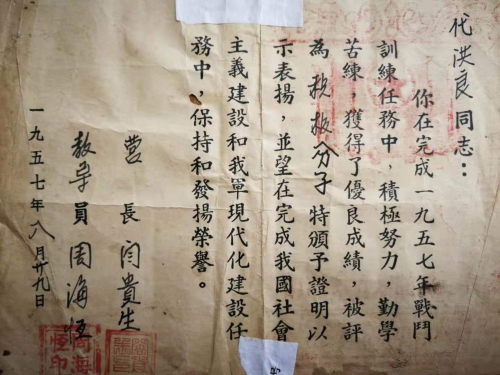 代洪良同志：
你在完成一九五七年戰鬥
訓練任務中，積極努力，勤學
苦練，獲得了優良成績，被評
為积极分子特頒予證明以
示表揚，並望在完成我國社會
主義建設和我軍現代化建設任
務中，保持和發揚榮譽。
营長闫貴生
教导員周海
一九五七年八月廿九日